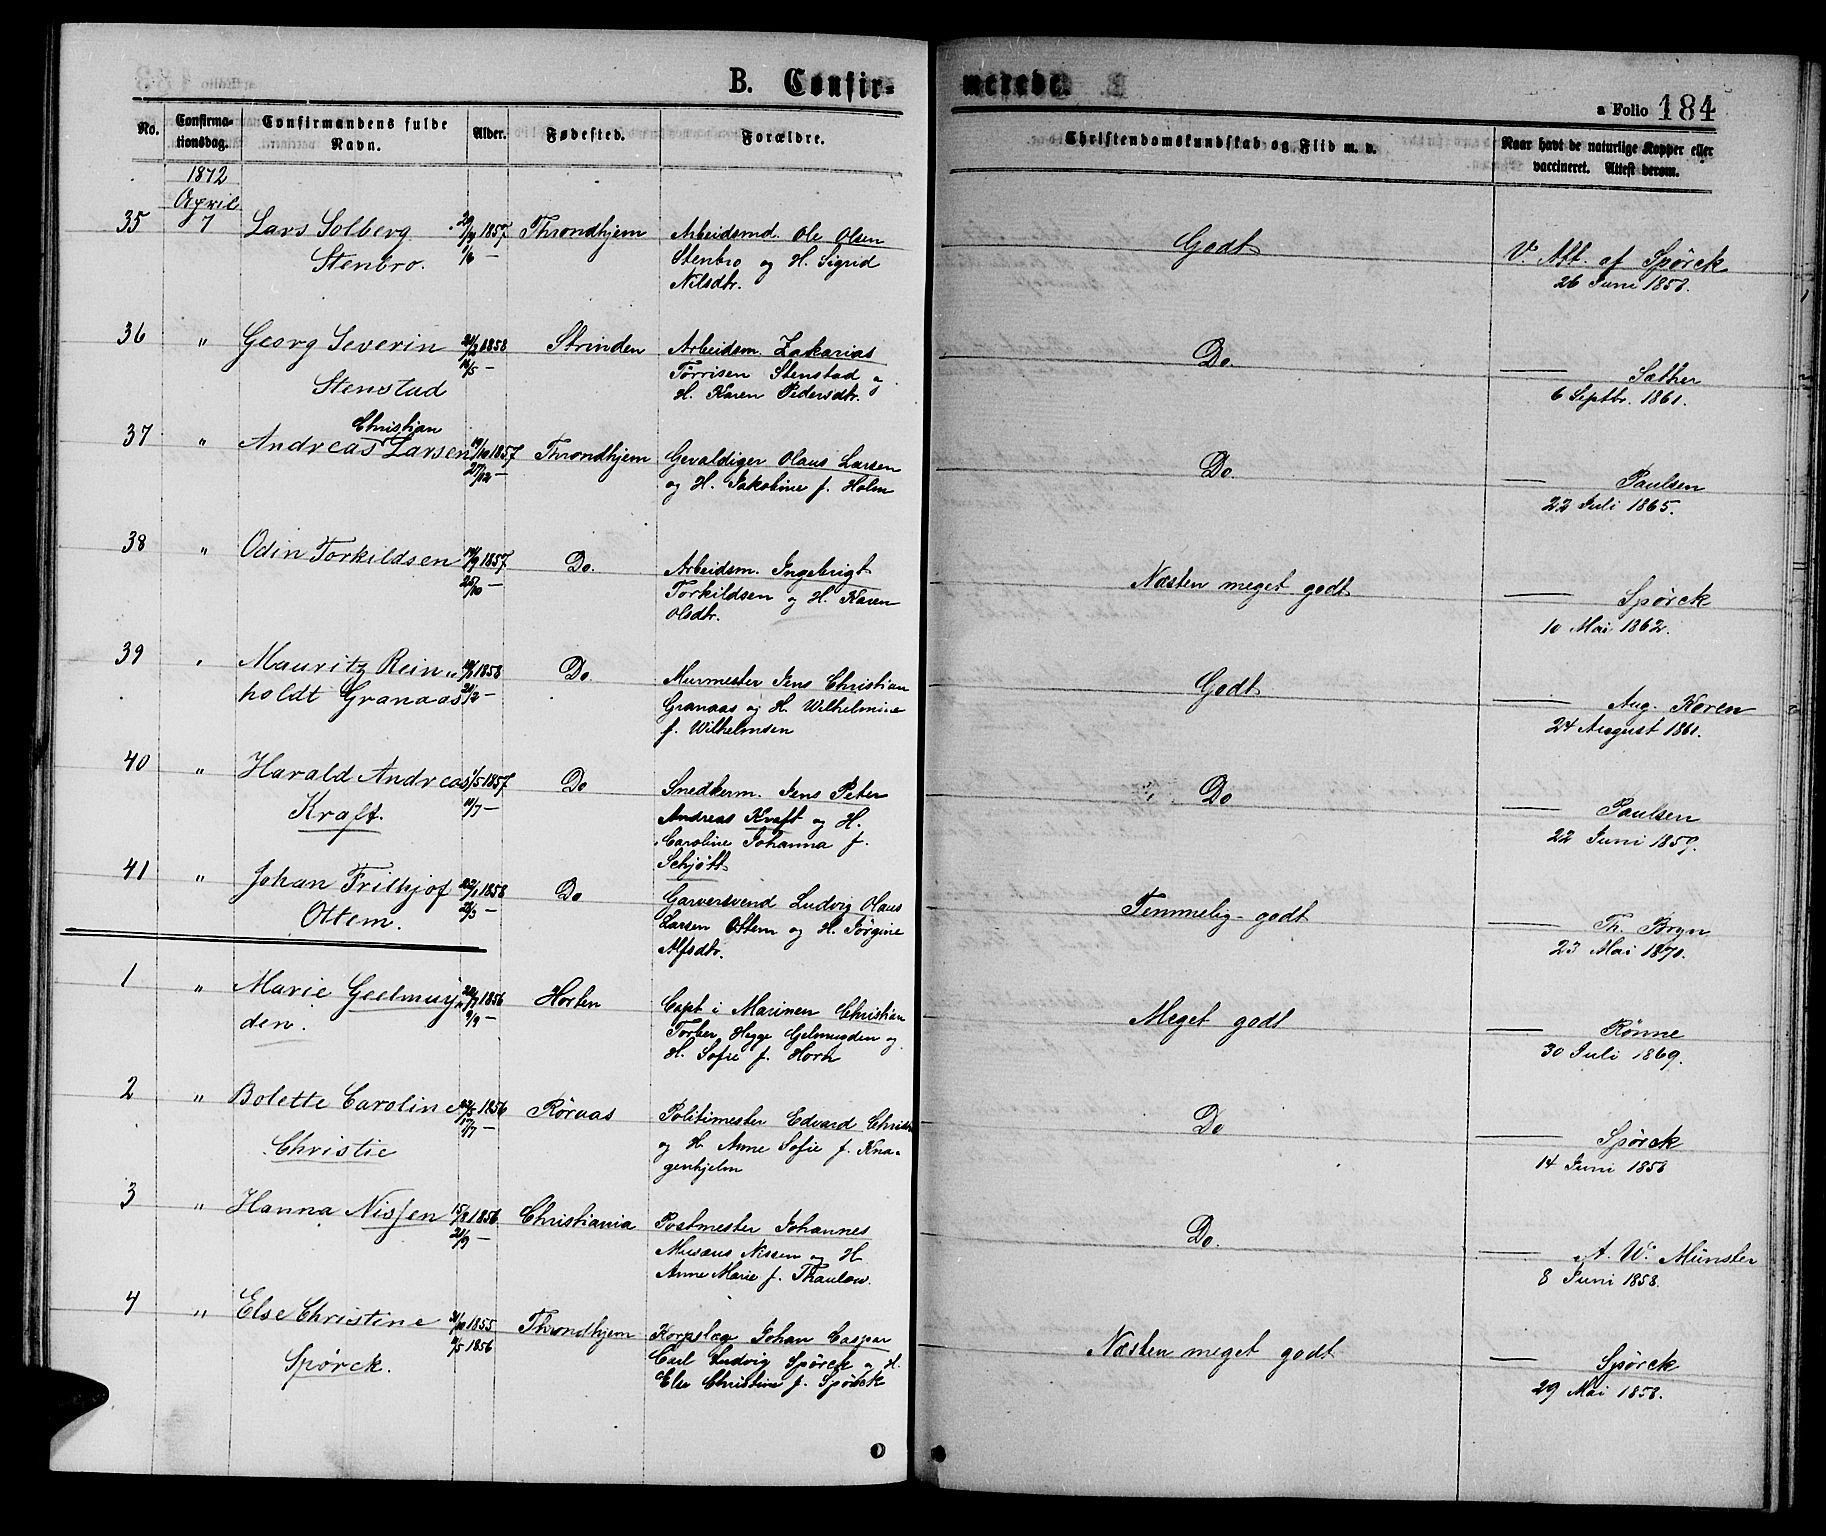 B. Confir-
merede.
a Folio 184
No.
Confirma-
tionsdag.
Confirmandens fulde
Navn.
Alder.
Fødested.
Forældre.
Christendomskundskab og Flid m. v.
Naar havt de naturlige Kopper eller
vaccineret. Attest derom.
1872
April
35 7 Lars Solberg 1857 Throndhjem Arbeidsmd. Ole Olsen Godt V. Att. af Spørck
Stenbro. 1/6 — Stenbro og H. Sigrid 26 Juni 1858.
Nilsdtr.
36 " Georg Severin 1858 Strinden Arbeidsm. Zakarias Do. — Sæther
Stenstad 16/5 — Tørrisen Stenstad og 6 Septbr. 1861.
H. Karen Pedersdtr.
Christian
37 " Andreas Larsen 19/10 1857 Throndhjem Gevaldiger Olaus Larsen Do. — Paulsen
27/12 — og H. Jakobine f. Holm 22 Juli 1865.
38 " Odin Torkildsen 14/9 1857 Do. Arbeidsm. Ingebrigt Næsten meget godt — Spørck
25/10 — Torkildsen og H. Karen 10 Mai 1862.
Olsdtr.
39 " Mauritz Rein- 1858 Do Murmester Jens Christian Godt Aug. Koren
holdt Granaas 21/2 — Granaas og H. Wilhelmine 24 August 1861.
f. Wilhelmsen
40 " Harald Andreas 1/5 1857 Do Snedkerm. Jens Peter Do — Paulsen
Kraft. 11/7 — Andreas Kraft og H. 22 Juni 1859.
Caroline Johanna f.
Schjøtt
41 " Johan Frithjof 22/1 1858 Do Garversvend Ludvig Olaus Temmelig godt — Th. Bryn
Ottem. 21/3 — Larsen Ottem og H. Jørgine 23 Mai 1870.
Alfsdtr.
1 " Marie Geelmuy- 1856 Horten Capt i Marinen Christian Meget godt — Rønne
den. 9/9 — Torber, Hegge Gelmuyden og 30 Juli 1869.
H. Sofie f. Horn
2 " Bolette Caroline 22/5 1856 Røraas Politimester Edvard Christie Do — Spørck
Christie 17/7 — og H. Anne Sofie f. Kna- 14 Juni 1858
genhjelm
3 " Hanna Nissen 15/8 1856 Christiania Postmester Johannes Do. — A. W. Münster
21/9 — Musæus Nissen og H 8 Juni 1858.
Anne Marie f. Thaulow.
4 " Else Christine 31/10 1855 Throndhjem Korpslæg Johan Caspar Næsten meget godt — Spørck
Spørck. 11/5 1856 Carl Ludvig Spørck og H. 29 Mai 1858.
Else Christine f. Spørck